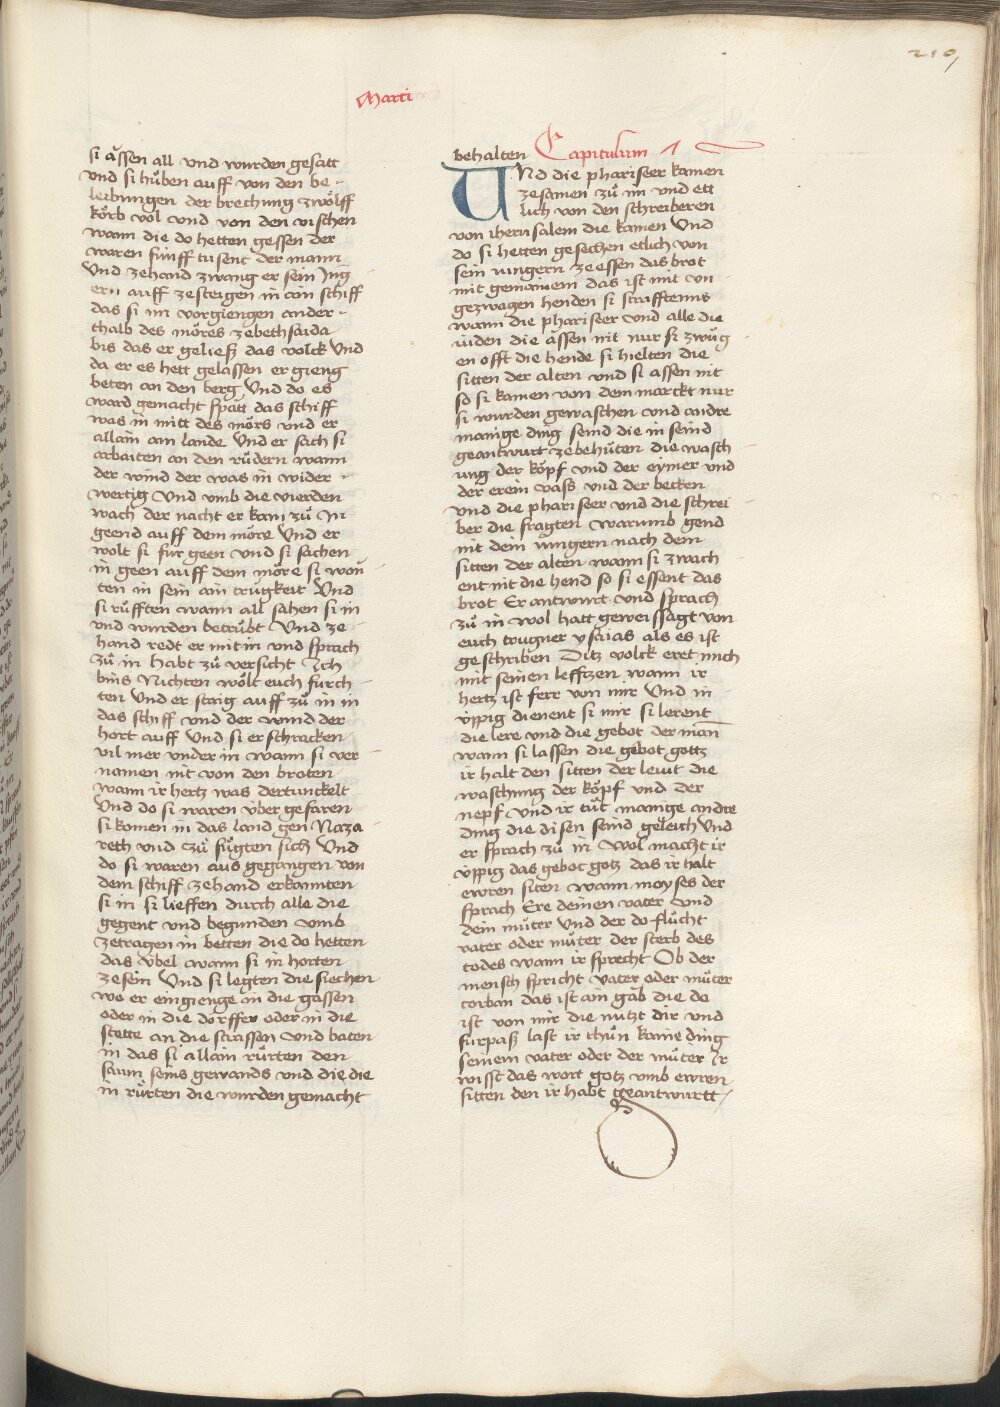 219
Marci
si åssen all vnd wurden gesatt
vnd si hůben auff von den be-
leibungen der brechung zwölff
körb vol vnd von den vischen
wann die do hetten gessen der
waren fünff tusent der mann
Vnd zehand zwang er sein Jng
ern auff zesteigen in ain schiff
das si im vorgiengen ander-
thalb des möres zebethsaida
bis das er geließ das volck Vnd
da er es hett gelassen er gieng
beten an den berg Vnd do es
ward gemacht spätt das schiff
was in mitt des mörs vnd er
allain am lande Vnd er sach si
arbaiten an den růdern wann
der wind der was in wider-
wertig Vnd vmb die vierden
wach der nacht er kam zů In
geend auff dem möre Vnd er
wolt si fur geen vnd si sachen
in geen auff dem möre si won
ten in sein ain trugkeit Vnd
si růfften wann all sahen si in
vnd wurden betrůbt Vnd ze
hand redt er mit in vnd sprach
zů in habt zů versicht Ich
bins Nichten wölt euch furch
ten Vnd er staig auff zů in in
das schiff vnd der wind der
hort auff Vnd si erschracken
vil mer vnder in wann si ver
namen nit von den broten
wann ir hertz was dertunckelt
Vnd do si waren vber gefaren
si komen in das land gen Naza
reth vnd zů fůgten sich Vnd
do si waren aus gegangen von
dem schiff zehand erkannten
si in si lieffen durch alle die
gegent vnd begunden vmb
zetragen in betten die do hetten
das vbel wann si in horten
zesein Vnd si legten die siechen
wo er eingienge in die gassen
oder in die dorffer oder in die
stette an die strassen vnd baten
in das si allain růrten den
saum seins gewands vnd die die
in růrten die wurden gemacht
behalten Capitulum
VNd die phariseer kamen
zesamen zů im vnd ett
lich von den schreiberen
von iherusalem die kamen Vnd
do si hetten gesechen etlich von
sein iungern zeessen das brot
mit gemainem das ist mit vn
gezwagen henden si strafftenns
wann die phariseer vnd alle die
iuden die åssen nit nur si zwůg
en offt die hende si hielten die
sitten der alten vnd si assen nit
so si kamen von dem marckt nur
si wurden gewaschen vnd andre
manige ding seind die in seind
geantwurt zebehůten die wasch
ung der köpf vnd der eymer vnd
der erein vass vnd der becken
vnd die phariseer vnd die schrei
ber die fragten warumb gend
nit dein iungern nach dem
sitten der alten wann si zwach
ent nit die hend so si essent das
brot Er antwurt vnd sprach
zů in wol hatt geweissagt von
euch trugner ysaias als es ist
geschriben Ditz volck eret mich
mit seinen leffzen wann ir
hertz ist ferr von mir Vnd in
vppig dienent si mir si lerent
die lere vnd die gebot der man
wann si lassen die gebot gottz
ir halt den sitten der leuit die
waschung der köpf vnd der
nepf vnd ir tůt manige andre
ding die disen seind geleich Vnd
er sprach zů in Wol macht ir
vppig das gebot gotz das ir halt
ewren siten wann moyses der
sprach Ere deinen vater vnd
dein můter Vnd der do flůcht
vater oder můter der sterb des
todes wann ir sprecht Ob der
mensch spricht vater oder můter
corban das ist ain gab die do
ist von mir die nutzt dir vnd
furpaß last ir thůn kaine ding
seinem vater oder der můter Ir
wisst das wort gotz vmb ewren
sitten den ir habt geantwurtt